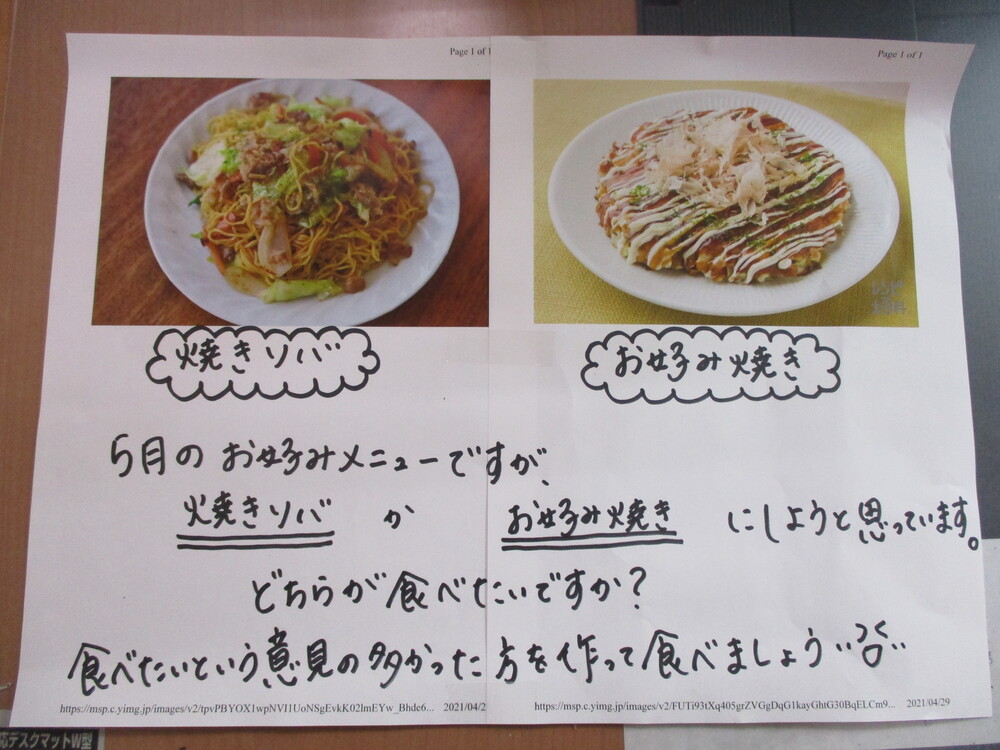 Page 1 of 1
Page 1 of 1
焼きソバ
お好み焼き
5月のお好みメニューですが、
焼きソバ か お好み焼き にしようと思っています。
どちらが食べたいですか?
食べたいという意見の多かった方を作って食べましょう
https://msp.c.yimg.jp/images/v2/tpvPBYOX1wpNVI1UoNSgEvkK02lmEYw_Bhde6... 2021/04/2
https://msp.c.yimg.jp/images/v2/FUTi93tXq405grZVGgDqG1kayGhtG30BqELCm9... 2021/04/29
応デスクマットW型